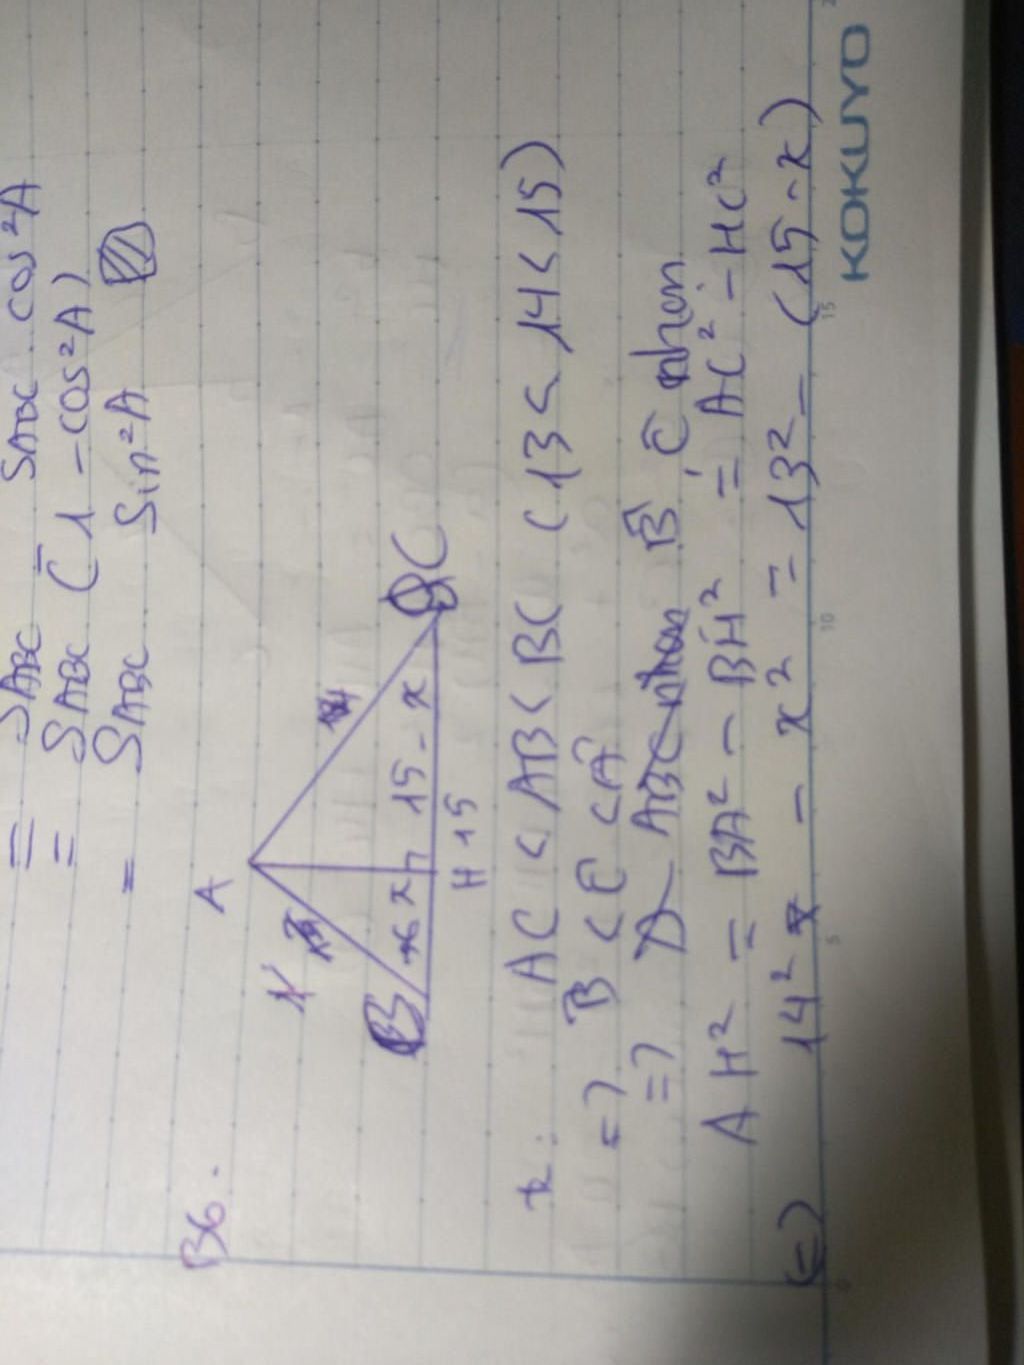 = SABC - SABC . cos²A
= SABC (1 - cos²A)
= SABC Sin²A
B6.
A
B
x
15 - x
C
H
15
*: AC < AB < BC (13 < 14 < 15)
=> B̂ < Ĉ < Â
=> B̂, Ĉ nhọn
AH² = BA² - BH² = AC² - HC²
(=) 14² - x² = 13² - (15 - x)
5
10
15
KOKUYO